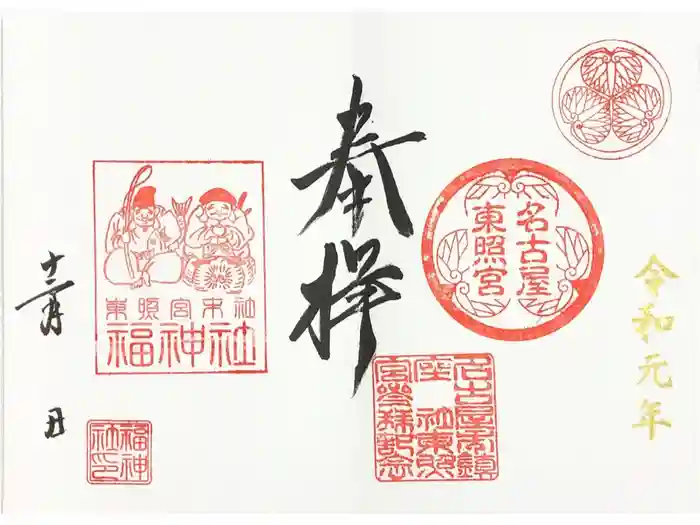 令和元年
名古屋
東照宮
名古屋市鎮
座　社東照
宮参拝記念
奉拝
東照宮末社
福神社
福神
社印
十二月　日